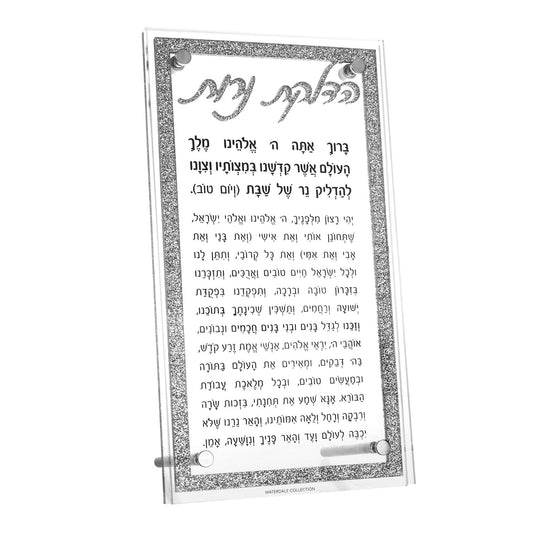 הדלקת נרות
בָּרוּךְ אַתָּה ה' אֱלֹהֵינוּ מֶלֶךְ
הָעוֹלָם אֲשֶׁר קִדְּשָׁנוּ בְּמִצְוֹתָיו וְצִוָּנוּ
לְהַדְלִיק נֵר שֶׁל שַׁבָּת (וְיוֹם טוֹב).
יְהִי רָצוֹן מִלְּפָנֶיךָ, ה' אֱלֹהֵינוּ וֵאלֹהֵי יִשְׂרָאֵל,
שֶׁתְּחוֹנֵן אוֹתִי וְאֶת אִישִׁי (וְאֶת בָּנַי וְאֶת
אָבִי וְאֶת אִמִּי) וְאֶת כָּל קְרוֹבַי, וְתִתֵּן לָנוּ
וּלְכָל יִשְׂרָאֵל חַיִּים טוֹבִים וַאֲרֻכִּים, וְתִזְכְּרֵנוּ
בְּזִכָּרוֹן טוֹבָה וּבְרָכָה, וְתִפְקְדֵנוּ בִּפְקֻדַּת
יְשׁוּעָה וְרַחֲמִים, וְתַשְׁכִּין שְׁכִינָתְךָ בְּתוֹכֵנוּ,
וְזַכֵּנוּ לְגַדֵּל בָּנִים וּבְנֵי בָנִים חֲכָמִים וּנְבוֹנִים,
אוֹהֲבֵי ה', יִרְאֵי אֱלֹהִים, אַנְשֵׁי אֱמֶת זֶרַע קֹדֶשׁ,
בַּה' דְּבֵקִים, וּמְאִירִים אֶת הָעוֹלָם בַּתּוֹרָה
וּבְמַעֲשִׂים טוֹבִים, וּבְכָל מְלֶאכֶת עֲבוֹדַת
הַבּוֹרֵא. אָנָּא שְׁמַע אֶת תְּחִנָּתִי, בִּזְכוּת שָׂרָה
וְרִבְקָה וְרָחֵל וְלֵאָה אִמּוֹתֵינוּ, וְהָאֵר נֵרֵנוּ שֶׁלֹּא
יִכְבֶּה לְעוֹלָם וָעֶד וְהָאֵר פָּנֶיךָ וְנִוָּשֵׁעָה, אָמֵן.
WATERDALE COLLECTION